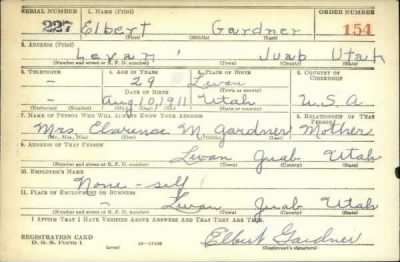 SERIAL NUMBER 1. NAME (Print) ORDER NUMBER
227 Elbert Gardner 154
(First) (Middle) (Last)
2. ADDRESS (Print)
Levan Juab Utah
(Number and street or R. F. D. number) (Town) (County) (State)
3. TELEPHONE 4. AGE IN YEARS 5. PLACE OF BIRTH 6. COUNTRY OF CITIZENSHIP
- 29 Levan
DATE OF BIRTH (Town or county)
- Aug 10, 1911 Utah U.S.A
(Exchange) (Number) (Mo.) (Day) (Yr.) (State or country)
7. NAME OF PERSON WHO WILL ALWAYS KNOW YOUR ADDRESS 8. RELATIONSHIP OF THAT PERSON
Mrs. Clarence M Gardner Mother
(Mr., Mrs., Miss) (First) (Middle) (Last)
9. ADDRESS OF THAT PERSON
Levan Juab Utah
(Number and street or R. F. D. number) (Town) (County) (State)
10. EMPLOYER'S NAME
None - self
11. PLACE OF EMPLOYMENT OR BUSINESS
- Levan Juab Utah
(Number and street or R. F. D. number) (Town) (County) (State)
I AFFIRM THAT I HAVE VERIFIED ABOVE ANSWERS AND THAT THEY ARE TRUE.
REGISTRATION CARD
D. S. S. Form 1 Elbert Gardner
(Registrant's signature)